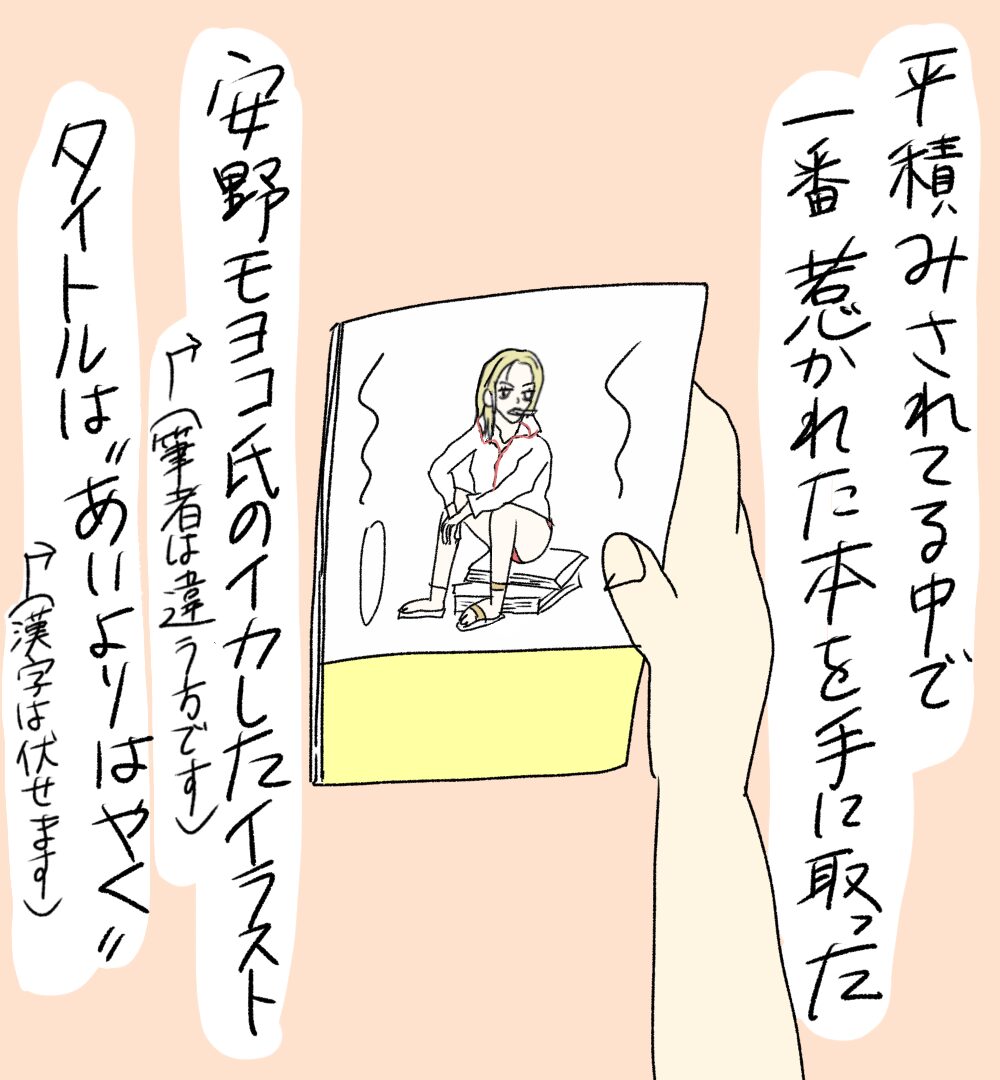 平積みされてる中で
一番惹かれた本を手に取った
安野モヨコ氏のイカしたイラスト
(筆者は違う方です)
タイトルは"あいよりはやく"
(漢字は伏せます)